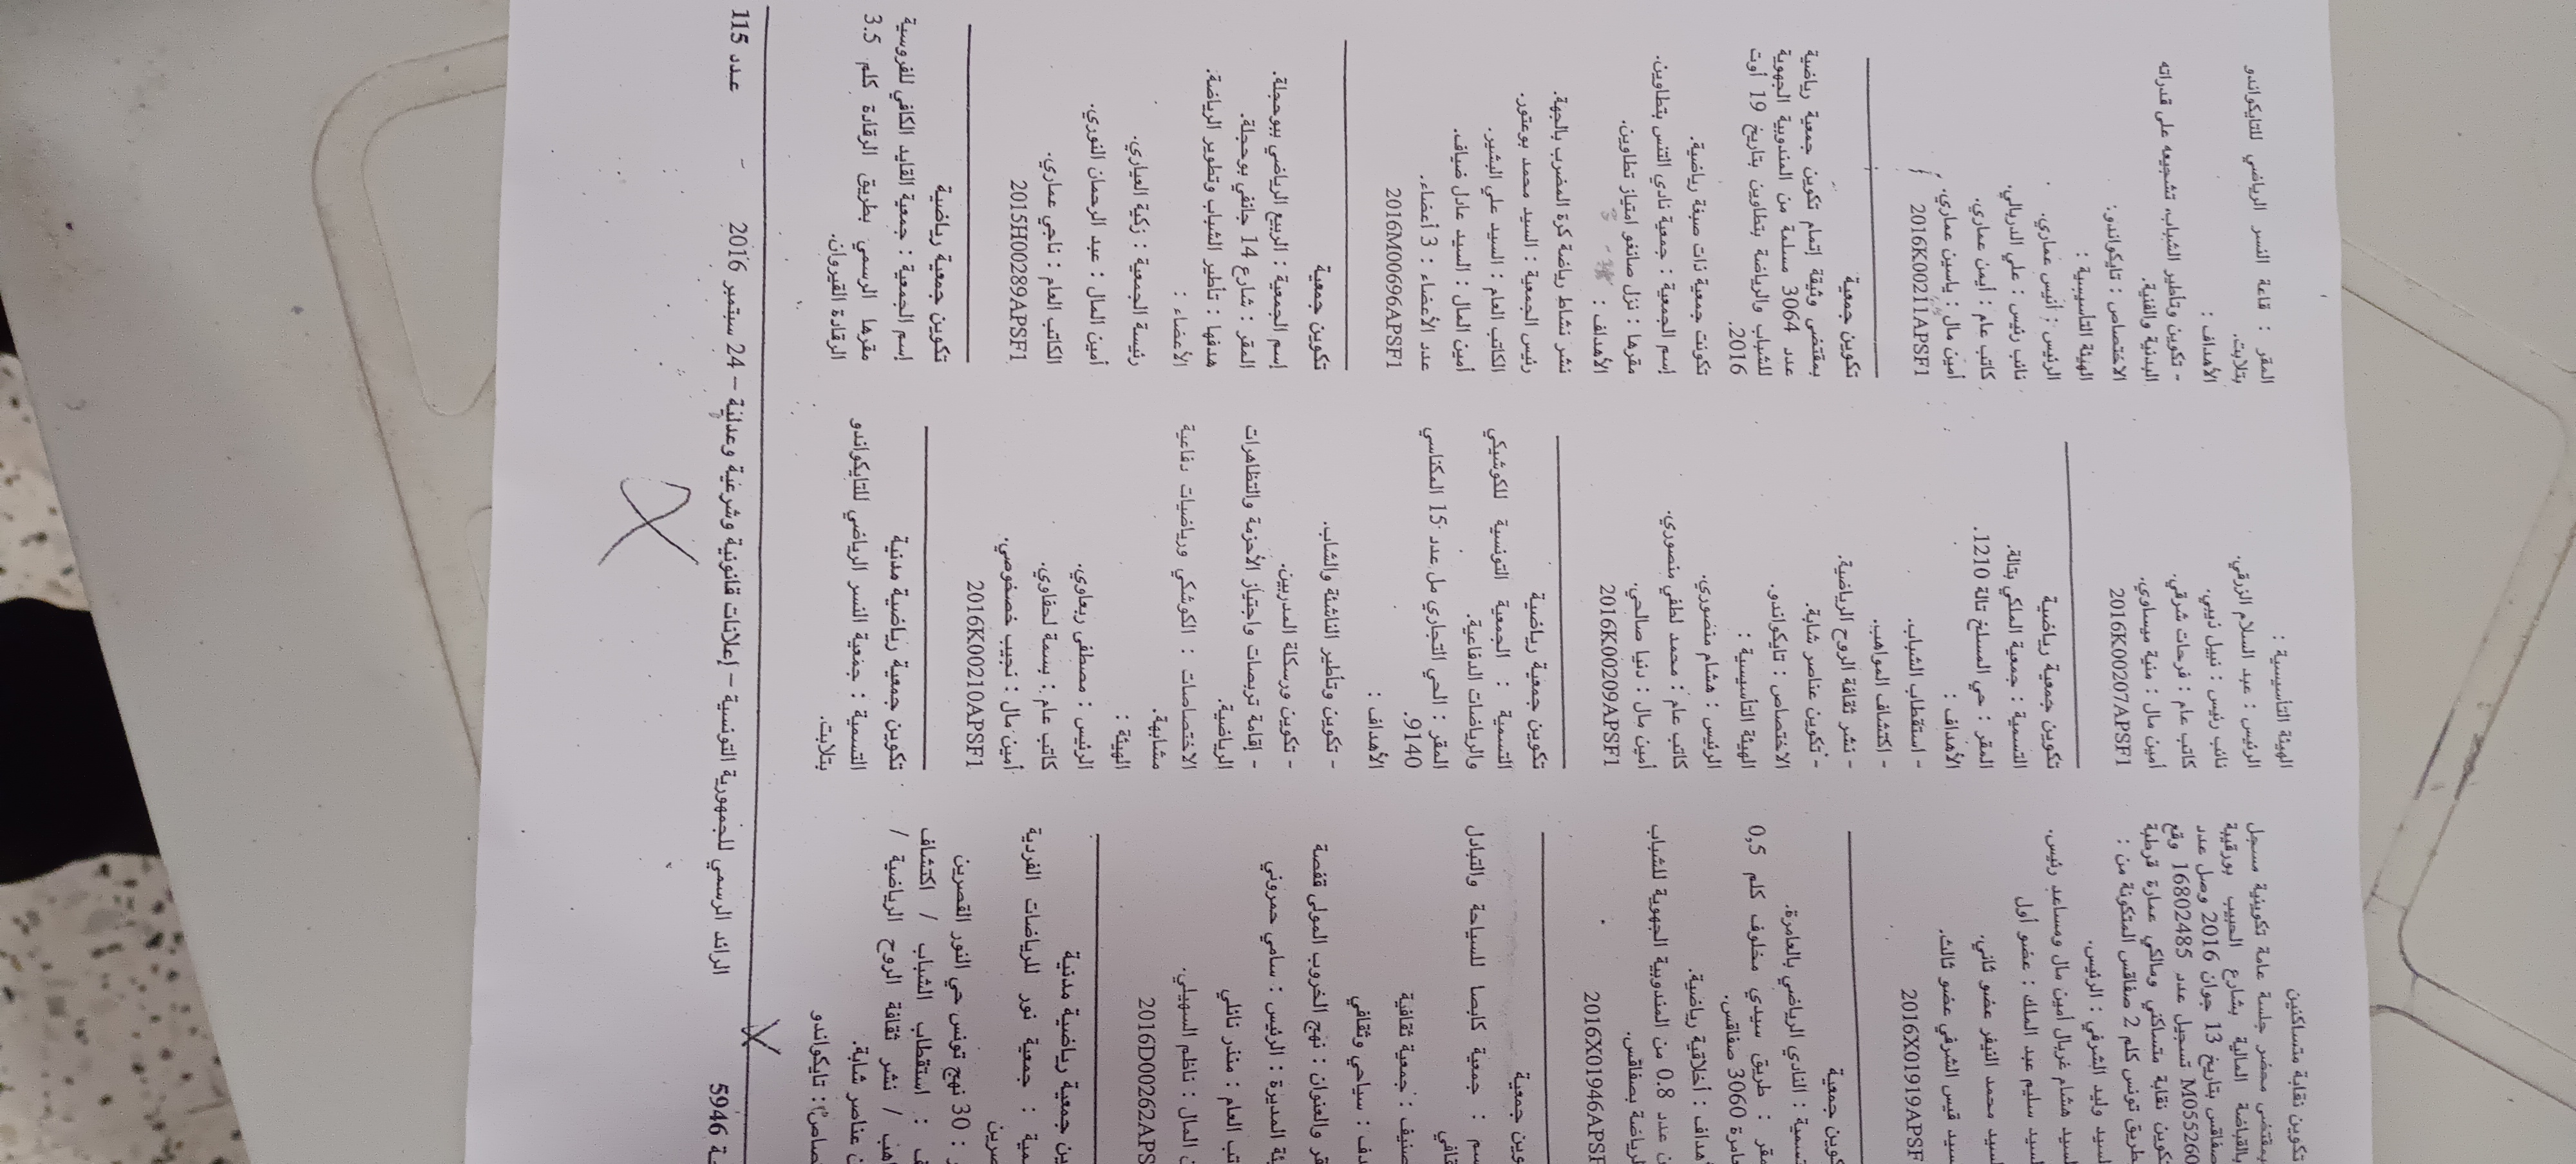 تكوين نقابة متساكنين
بمقتضى محضر جلسة عامة تكوينية مسجل
بالقباضة المالية بشارع الحبيب بورقيبة
صفاقس بتاريخ 13 جوان 2016 وصل عدد
M055260 تسجيل عدد 16802485 وقع
تكوين نقابة متساكني ومالكي عمارة قرطبة
طريق تونس كلم 2 صفاقس المتكونة من :
السيد وليد الشرفي : الرئيس.
السيد هشام غربال أمين مال ومساعد رئيس.
السيد سليم عبد الملك : عضو أول
السيد محمد النيفر عضو ثاني.
السيد قيس الشرفي عضو ثالث.
2016X01919APSF
تكوين جمعية
التسمية : النادي الرياضي بالعامرة.
المقر : طريق سيدي مخلوف كلم 0,5
العامرة 3060 صفاقس.
الأهداف : أخلاقية رياضية.
عدد 0.8 من المندوبية الجهوية للشباب
والرياضة بصفاقس.
2016X01946APSF
تكوين جمعية
: جمعية كابصا للسياحة والتبادل
: جمعية ثقافية
: سياحي وثقافي
والعنوان : نهج الخروب المولى قفصة
المديرة : الرئيس : سامي حمروني
العام : منذر نائلي
المال : ناظم السهيلي.
2016D00262APS
جمعية رياضية مدنية
: جمعية نور للرياضات الفردية
: 30 نهج تونس حي النور القصرين
: استقطاب الشباب / اكتشاف
/ نشر ثقافة الروح الرياضية /
عناصر شابة.
: تايكواندو
الهيئة التأسيسية :
الرئيس : عبد السلام الزرقي.
نائب رئيس : نبيل ذيبي.
كاتب عام : فرحات شرقي.
أمين مال : منية ميساوي.
2016K00207APSF1
تكوين جمعية رياضية
التسمية : جمعية الملكي بتالة.
المقر : حي المسلخ تالة 1210.
الأهداف :
- استقطاب الشباب.
- اكتشاف المواهب.
- نشر ثقافة الروح الرياضية.
- تكوين عناصر شابة.
الاختصاص : تايكواندو.
الهيئة التأسيسية :
الرئيس : هشام منصوري.
كاتب عام : محمد لطفي منصوري.
أمين مال : دنيا صالحي.
2016K00209APSF1
تكوين جمعية رياضية
التسمية : الجمعية التونسية للكوشيكي
والرياضات الدفاعية.
المقر : الحي التجاري مل عدد 15 المكناسي
9140.
الأهداف :
- تكوين وتأطير الناشئة والشاب.
- تكوين ورسكلة المدربين.
- إقامة تربصات واجتياز الأحزمة والتظاهرات
الرياضية.
الاختصاصات : الكوشكي ورياضيات دفاعية
مشابهة.
الهيئة :
الرئيس : مصطفى ربعاوي.
كاتب عام : بسمة لحفاوي.
أمين مال : نجيب خصخوصي.
2016K00210APSF1
تكوين جمعية رياضية مدنية
التسمية : جمعية النسر الرياضي للتايكواندو
بتلابت.
المقر : قاعة النسر الرياضي للتايكواندو
بتلابت.
الأهداف :
- تكوين وتأطير الشباب، تشجيعه على قدراته
البدنية والفنية.
الاختصاص : تايكواندو:
الهيئة التأسيسية :
الرئيس : أنيس عماري.
نائب رئيس : علي الدربالي.
كاتب عام : أيمن عماري.
أمين مال : ياسين عماري.
2016K00211APSF1
تكوين جمعية
بمقتضى وثيقة إتمام تكوين جمعية رياضية
عدد 3064 مسلمة من المندوبية الجهوية
للشباب والرياضة بتطاوين بتاريخ 19 أوت
2016.
تكونت جمعية ذات صبغة رياضية.
إسم الجمعية : جمعية نادي التنس بتطاوين.
مقرها : نزل صانغو امتياز تطاوين.
الأهداف :
نشر نشاط رياضة كرة المضرب بالجهة.
رئيس الجمعية : السيد محمد بوعتور.
الكاتب العام : السيد علي البشير.
أمين المال : السيد عادل ضياف.
عدد الأعضاء : 3 أعضاء.
2016M00696APSF1
تكوين جمعية
إسم الجمعية : الربيع الرياضي ببوحجلة.
المقر : شارع 14 جانفي بوحجلة.
هدفها : تأطير الشباب وتطوير الرياضة.
الأعضاء :
رئيسة الجمعية : زكية العياري.
أمين المال : عبد الرحمان النوري.
الكاتب العام : ناجي عماري.
2015H00289APSF1
تكوين جمعية رياضية
إسم الجمعية : جمعية القايد الكافي للفروسية
مقرها الرسمي بطريق الرقادة كلم 3.5
الرقادة القيروان.
5946 الرائد الرسمي للجمهورية التونسية – إعلانات قانونية وشرعية وعدلية – 24 سبتمبر 2016 عـدد 115